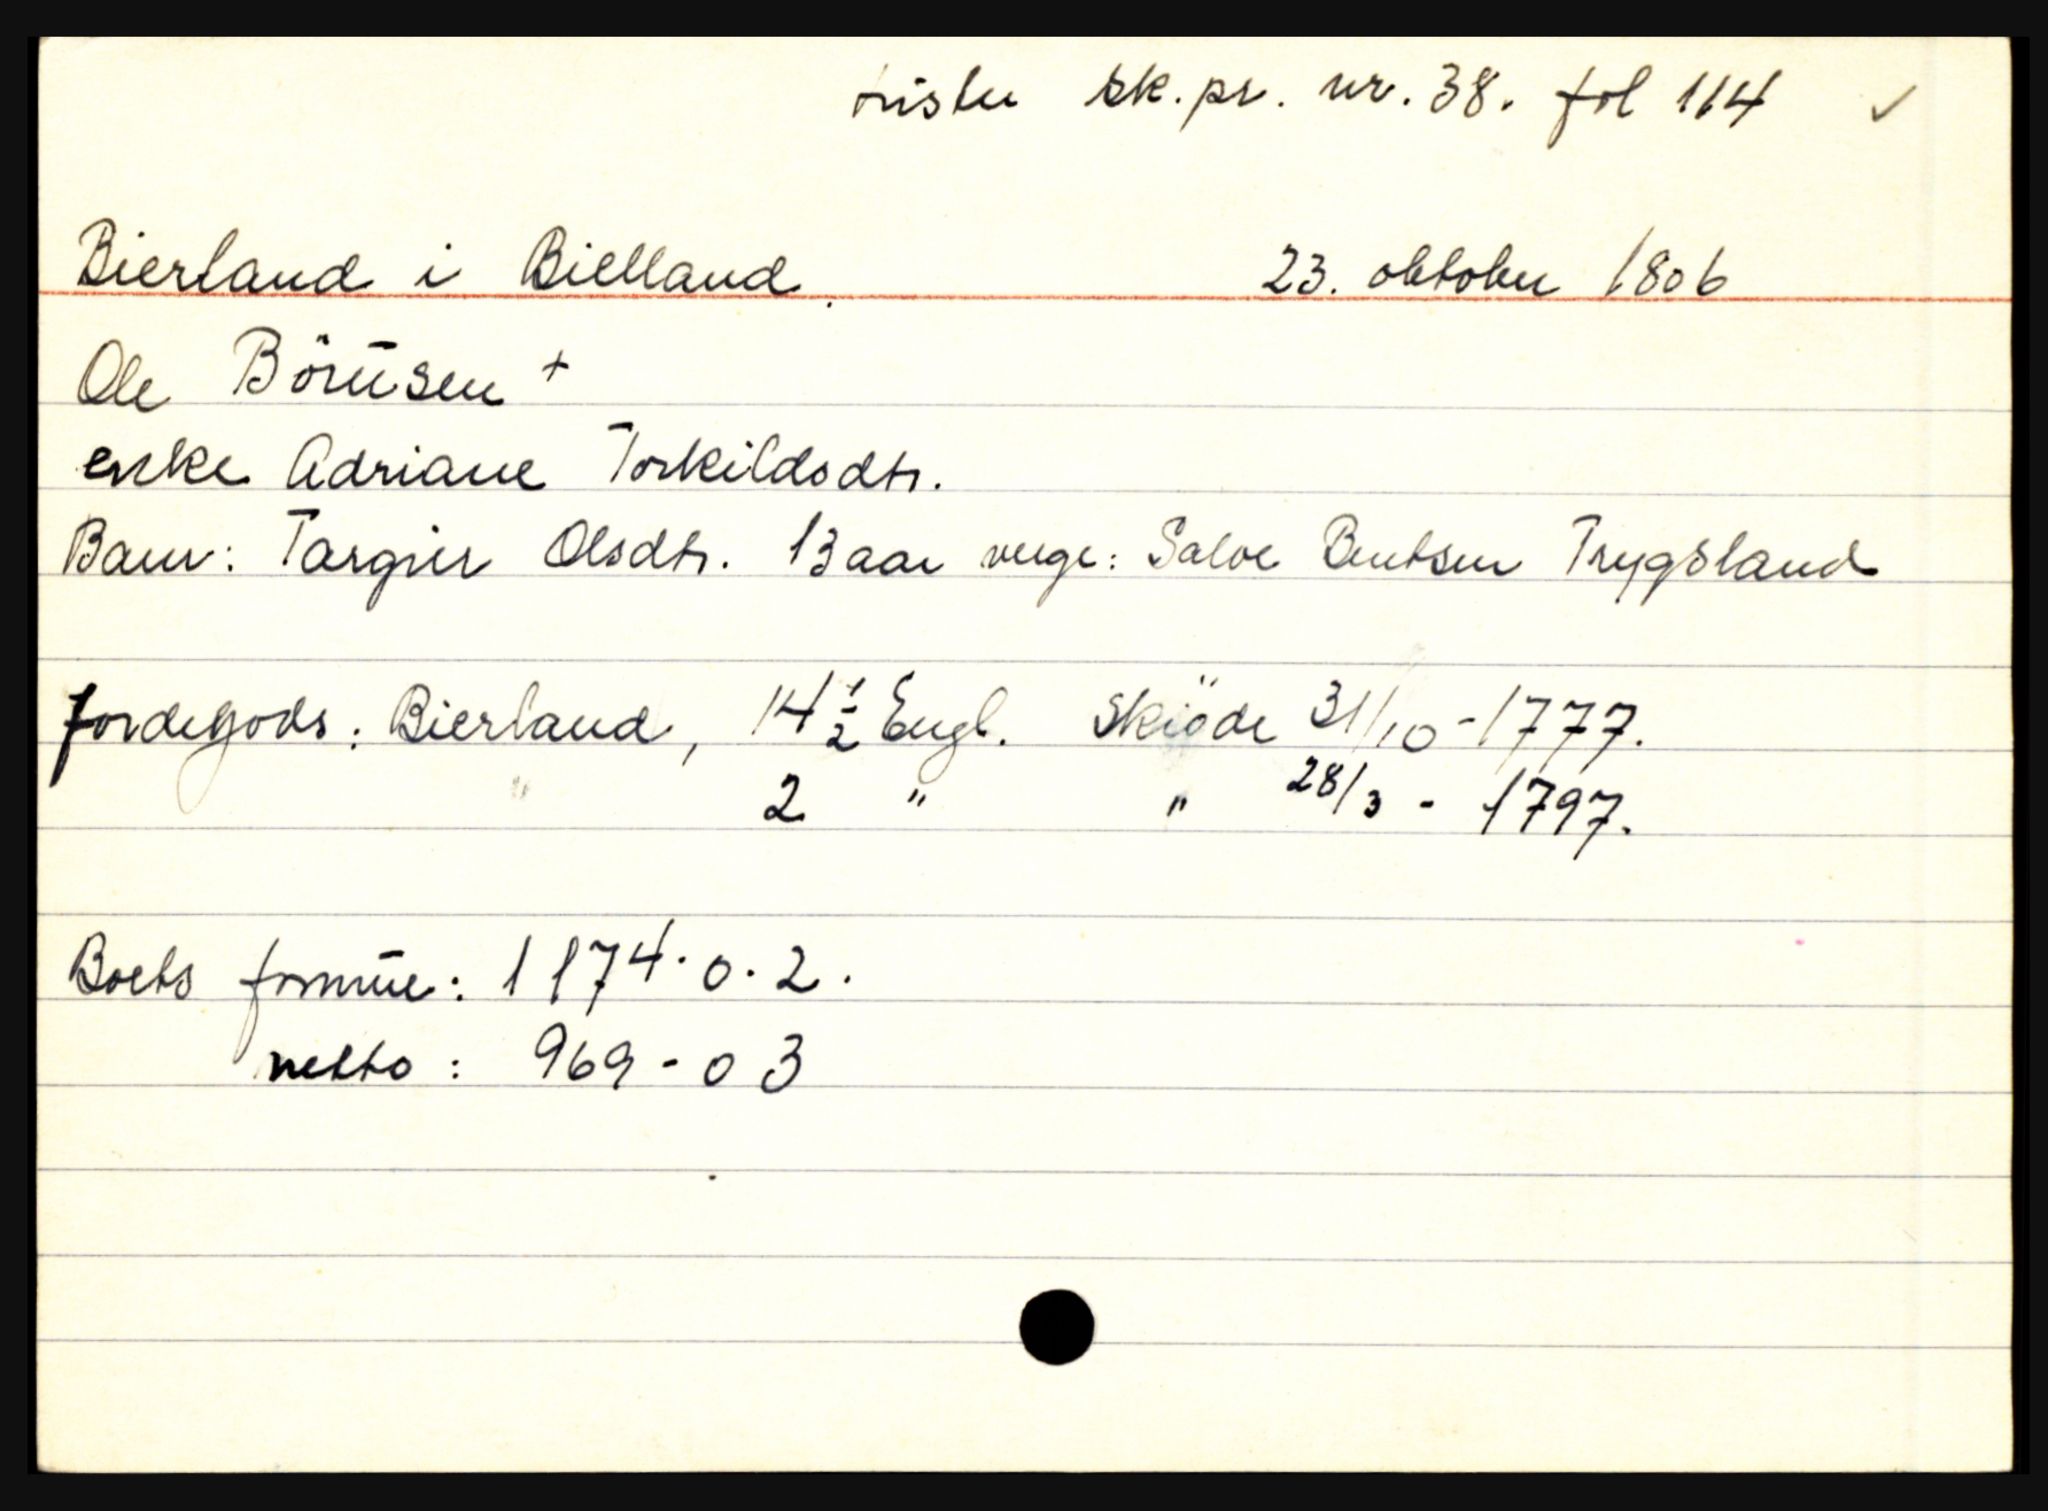 sk.pr. nr. 38. fol 114 ✓
Bierland i Bielland. 23. oktober 1806
Ole Börusen +
enke Adriane Torkildsdtr.
Barn: Targier Olsdtr. 13 aar verge: Salve Bentsen Trygsland
Jordegods: Bierland, 14 1/2 Engl. Skiöde 31/10 - 1777.
" 2 " " 28/3 - 1797.
Boets formue: 1174. 0. 2.
netto: 969 - 0 3